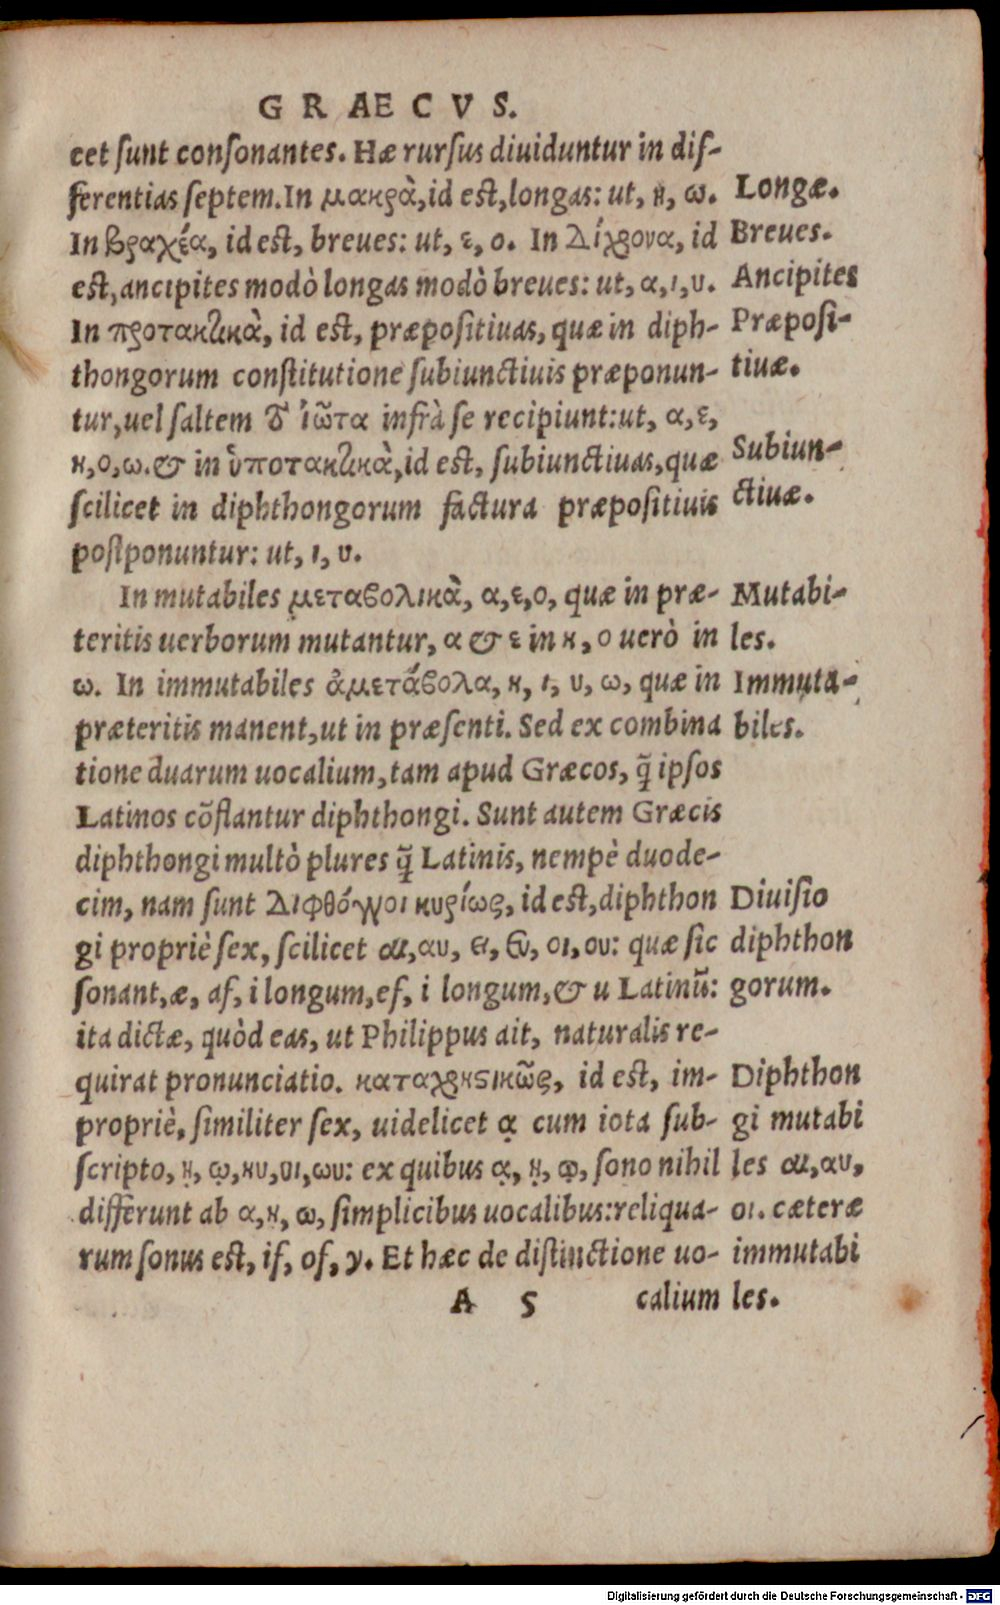 GRAECVS.
cet ſunt conſonantes. Hæ rurſus diuiduntur in dif-
ferentias ſeptem. In μακρὰ, id est, longas: ut, η, ω. Longæ.
In βραχέα, id est, breues: ut, ε, ο. In Δίχρονα, id Breues.
est, ancipites modò longas modò breues: ut, α, ι, υ. Ancipites
In προτακτικὰ, id est, præpoſitiuas, quæ in diph- Præpoſi-
thongorum conſtitutione ſubiunctiuis præponun- tiuæ.
tur, uel ſaltem τὸ ἰῶτα infrà ſe recipiunt: ut, α, ε,
η, ο, ω. & in ὑποτακτικὰ, id est, ſubiunctiuas, quæ Subiun-
ſcilicet in diphthongorum factura præpoſitiuis ctiuæ.
poſtponuntur: ut, ι, υ.
In mutabiles μεταβολικὰ, α, ε, ο, quæ in præ- Mutabi-
teritis uerborum mutantur, α & ε in η, ο uerò in les.
ω. In immutabiles ἀμετάβολα, η, ι, υ, ω, quæ in Immuta-
præteritis manent, ut in præſenti. Sed ex combina biles.
tione duarum uocalium, tam apud Græcos, q̃ ipſos
Latinos cõflantur diphthongi. Sunt autem Græcis
diphthongi multò plures q̃ Latinis, nempè duode-
cim, nam ſunt Διφθόγγοι κυρίως, id est, diphthon Diuiſio
gi propriè ſex, ſcilicet αι, αυ, ει, ευ, οι, ου: quæ ſic diphthon
ſonant, æ, af, i longum, ef, i longum, & u Latinũ: gorum.
ita dictæ, quòd eas, ut Philippus ait, naturalis re-
quirat pronunciatio. καταχρηϛικῶς, id est, im- Diphthon
propriè, ſimiliter ſex, uidelicet ᾳ cum iota ſub- gi mutabi
ſcripto, ῃ, ῳ, ηυ, υι, ωυ: ex quibus ᾳ, ῃ, ῳ, ſono nihil les αι, αυ,
differunt ab α, η, ω, ſimplicibus uocalibus: reliqua- οι. cæteræ
rum ſonus est, if, of, y. Et hæc de diſtinctione uo- immutabi
A 5 calium les.
Digitalisierung gefördert durch die Deutsche Forschungsgemeinschaft - DFG